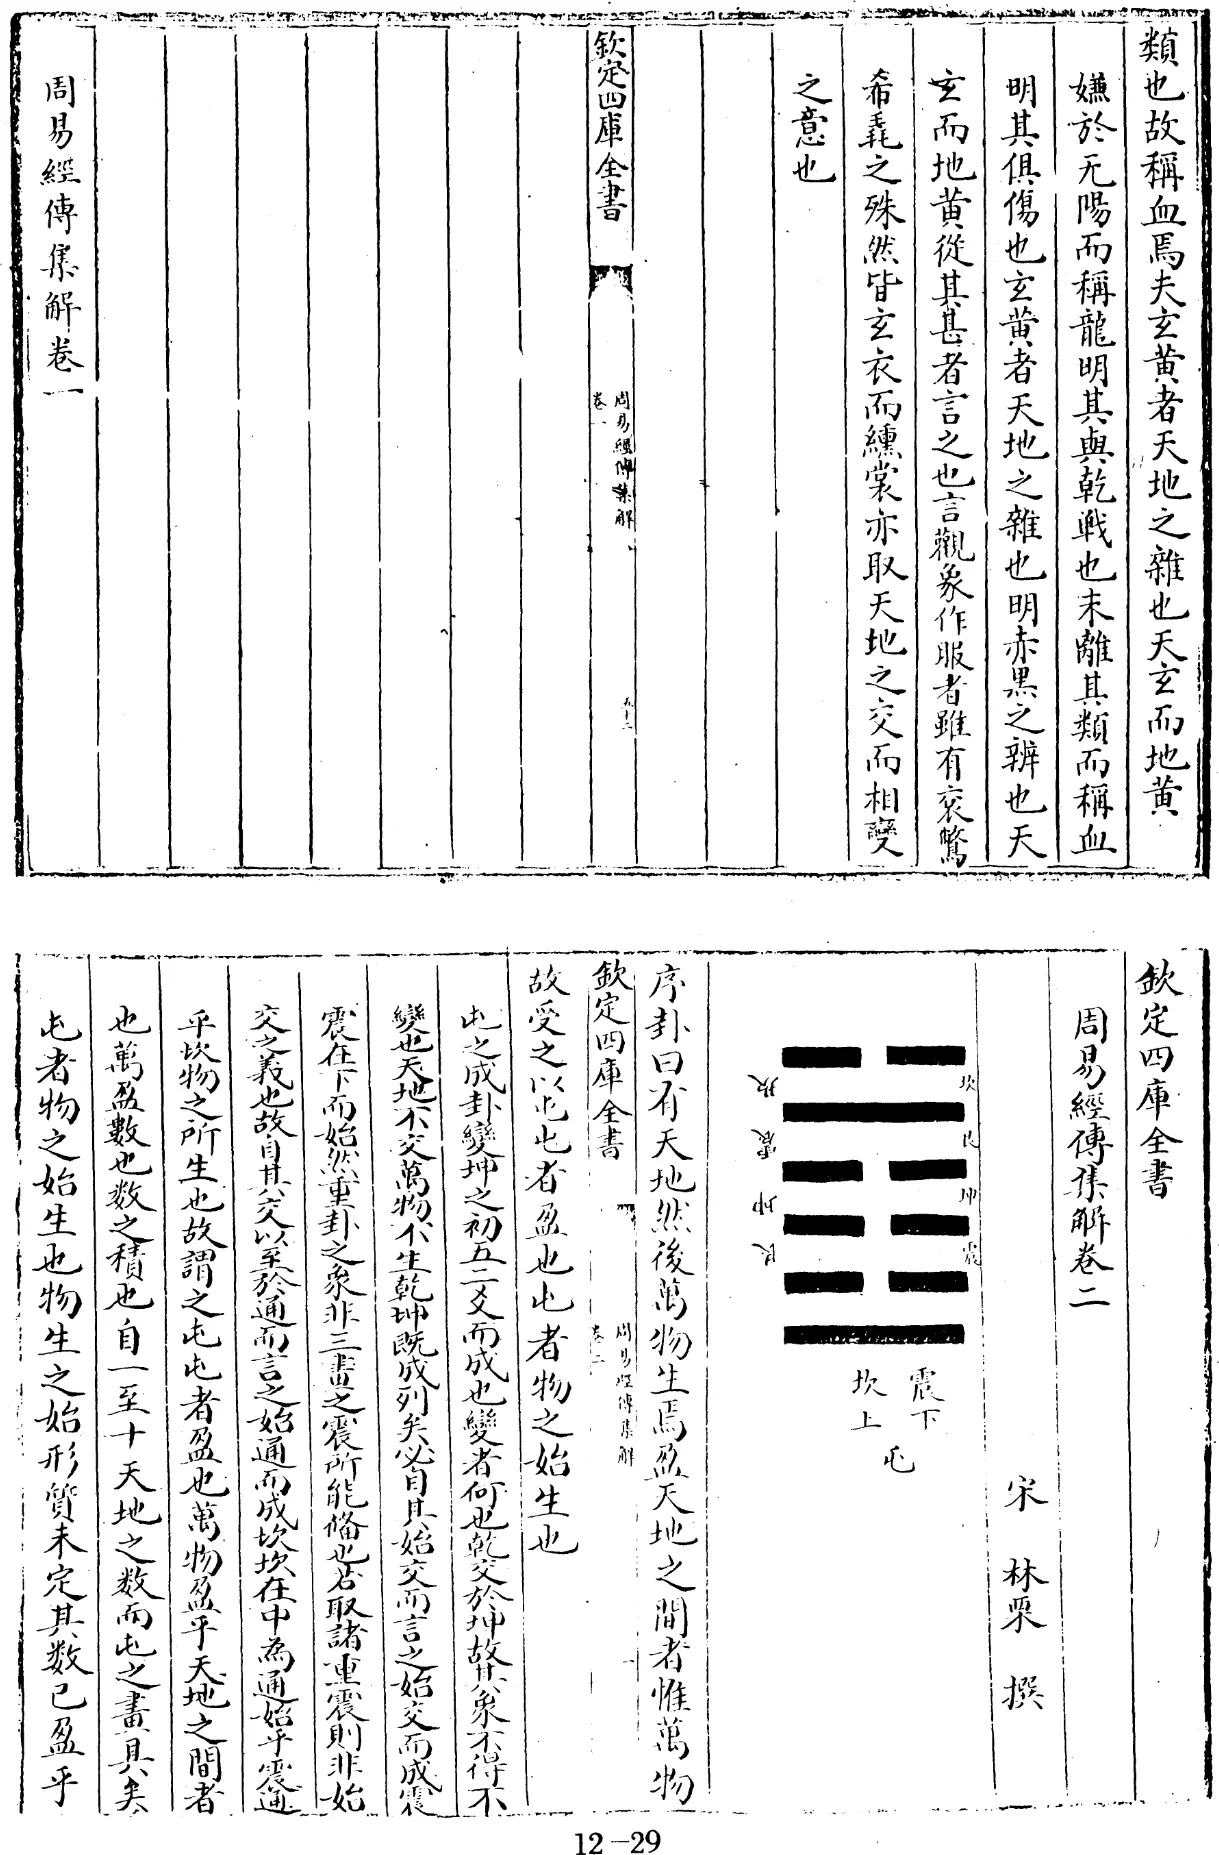 類也故稱血焉夫玄黄者天地之雜也天玄而地黄
嫌於无陽而稱龍明其與乾戰也未離其類而稱血
明其俱傷也玄黄者天地之雜也明赤黒之辨也天
玄而地黄從其甚者言之也言觀象作服者雖有衮鷩
希毳之殊然皆玄衣而纁裳亦取天地之交而相變
之意也
欽定四庫全書
周易經傳集解
卷一
五十二
周易經傳集解卷一
欽定四庫全書
周易經傳集解卷二
宋 林栗 撰
坎
艮
坤
震
坎
震
坤
艮
震下
坎上
屯
序卦曰有天地然後萬物生焉盈天地之間者惟萬物
欽定四庫全書
周易經傳集解
卷二
一
故受之以屯屯者盈也屯者物之始生也
屯之成卦變坤之初五二爻而成也變者何也乾交於坤故其象不得不
變也天地不交萬物不生乾坤既成列矣必自其始交而言之始交而成震
震在下而始然重卦之象非三畫之震所能備也若取諸重震則非始
交之義也故自其交以至於通而言之始通而成坎坎在中為通始乎震通
乎坎物之所生也故謂之屯屯者盈也萬物盈乎天地之間者
也萬盈數也數之積也自一至十天地之數而屯之畫具矣
屯者物之始生也物生之始形質未定其数已盈乎
12-29